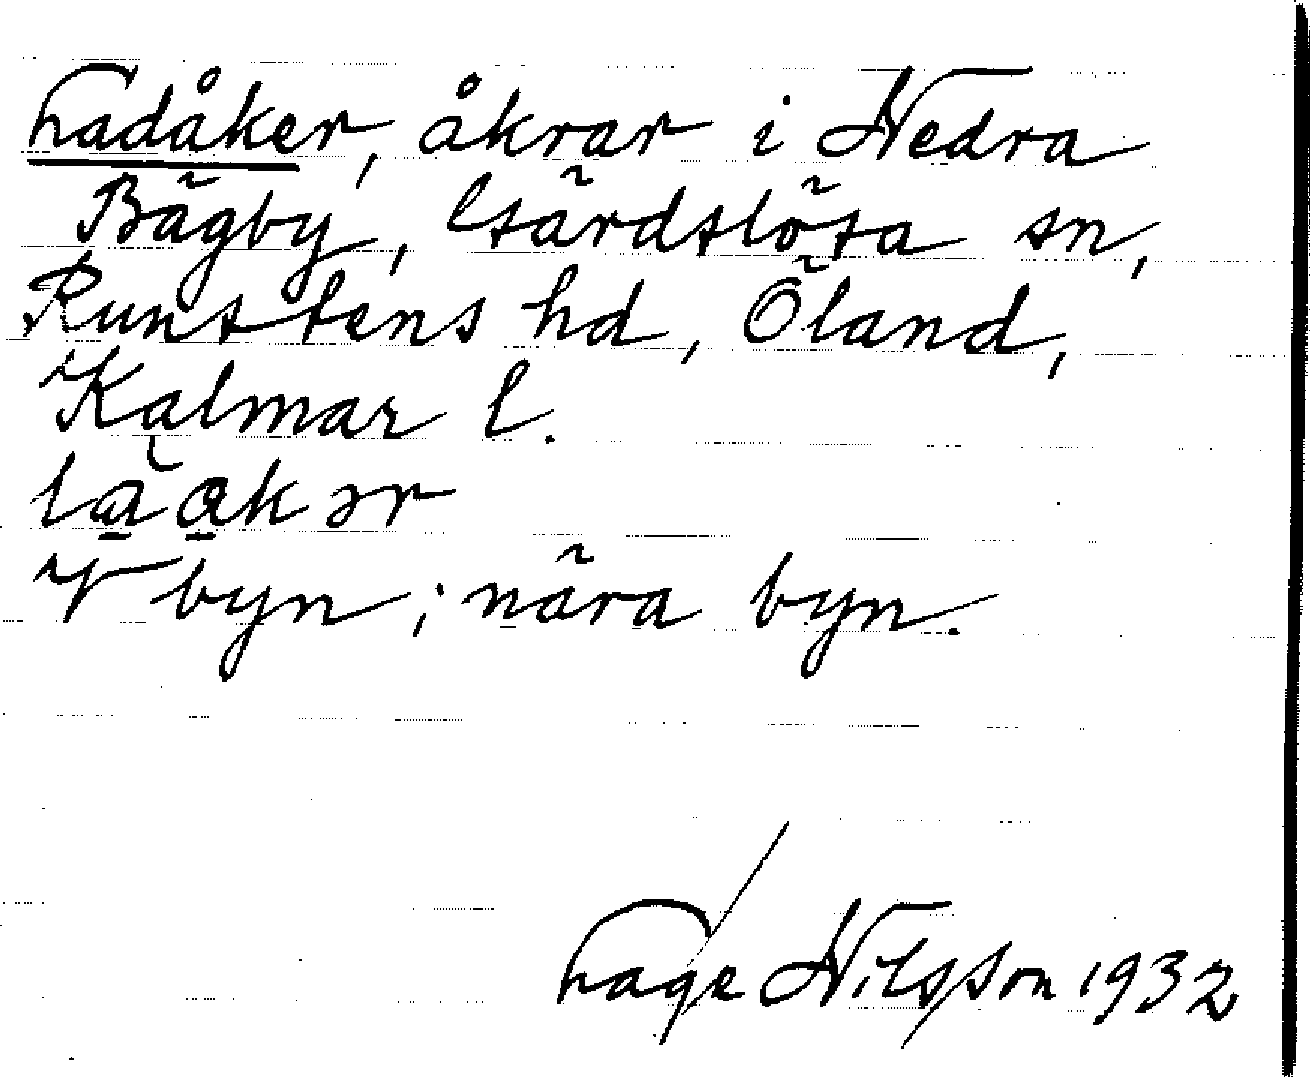 Ladåker, åkrar i Nedra
Bägby, Gärdslösa sn,
Runstens hd, Öland,
Kalmar l.
V byn; nära byn.
Lage Nilsson 1932